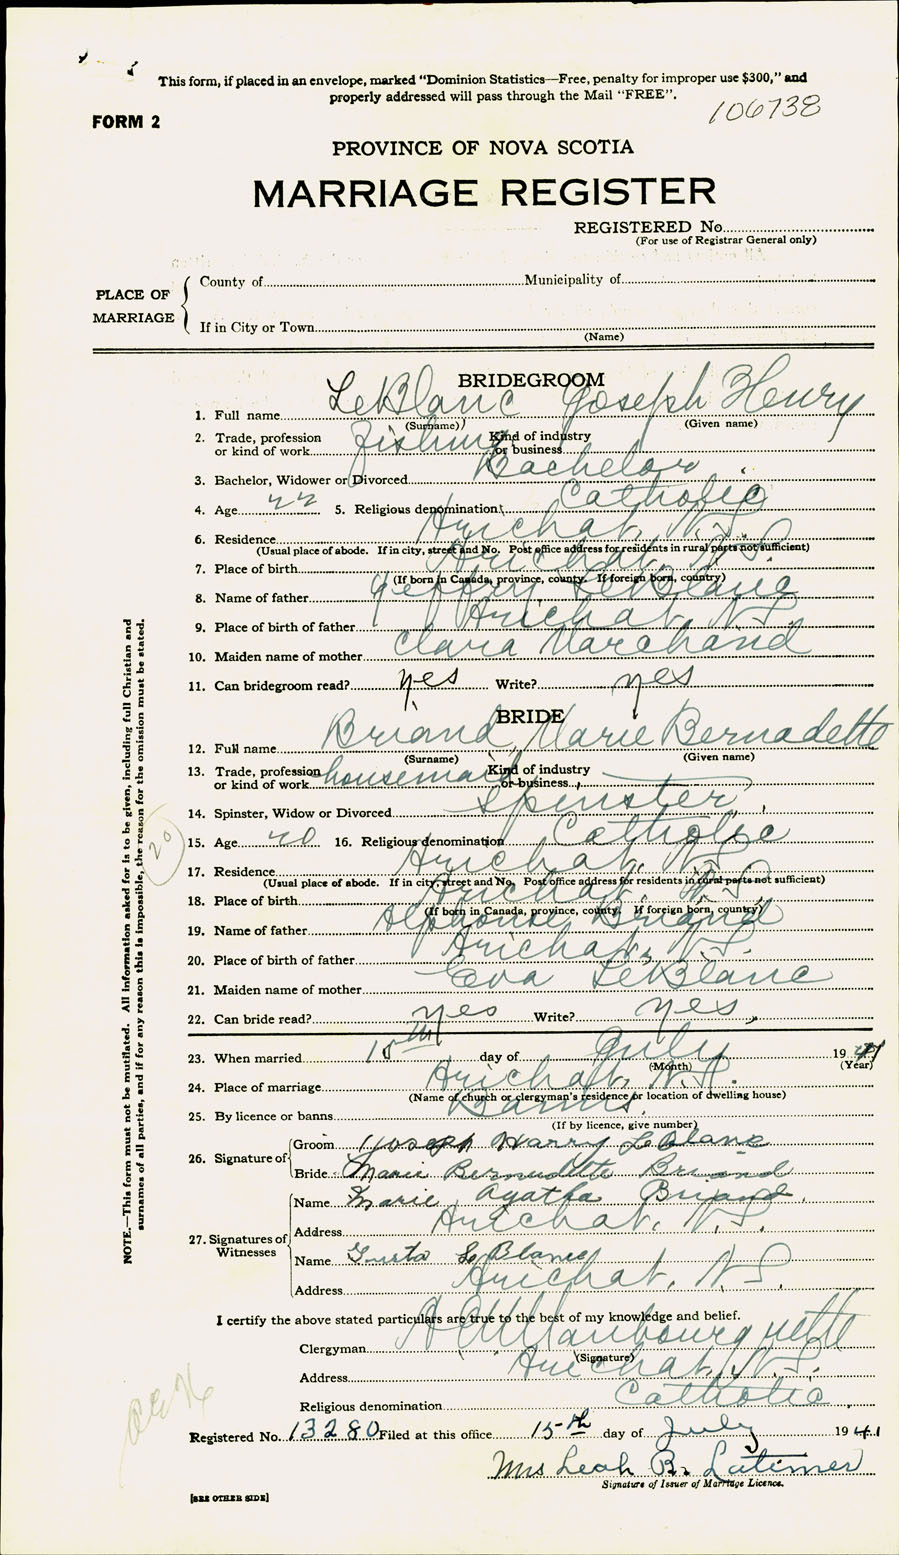 This form, if placed in an envelope, marked “Dominion Statistics—Free, penalty for improper use $300,” and
properly addressed will pass through the Mail “FREE”.
106738
FORM 2
PROVINCE OF NOVA SCOTIA
MARRIAGE REGISTER
REGISTERED No.
(For use of Registrar General only)
PLACE OF MARRIAGE
County of Municipality of
If in City or Town
(Name)
BRIDEGROOM
1. Full name LeBlanc Joseph Henry
(Surname) (Given name)
2. Trade, profession or kind of work Fishing Kind of industry or business
3. Bachelor, Widower or Divorced Bachelor
4. Age 22 5. Religious denomination Catholic
6. Residence Arichat, N.S.
(Usual place of abode. If in city, street and No. Post office address for residents in rural parts not sufficient)
7. Place of birth Arichat, N.S.
(If born in Canada, province, county. If foreign born, country)
8. Name of father Jeffry LeBlanc
9. Place of birth of father Arichat N.S.
10. Maiden name of mother Clara Marchand
11. Can bridegroom read? yes Write? yes
BRIDE
12. Full name Briand, Marie Bernadette
(Surname) (Given name)
13. Trade, profession or kind of work housemaid Kind of industry or business
14. Spinster, Widow or Divorced Spinster
15. Age 20 16. Religious denomination Catholic
20
17. Residence Arichat, N.S.
(Usual place of abode. If in city, street and No. Post office address for residents in rural parts not sufficient)
18. Place of birth Arichat, N.S.
(If born in Canada, province, county. If foreign born, country)
19. Name of father Alphonse Briand
20. Place of birth of father Arichat, N.S.
21. Maiden name of mother Eva LeBlanc
22. Can bride read? yes Write? yes
23. When married 15th day of July 1941
(Month) (Year)
24. Place of marriage Arichat, N.S.
(Name of church or clergyman's residence or location of dwelling house)
25. By licence or banns Banns
(If by licence, give number)
26. Signature of
Groom Joseph Harry LeBlanc
Bride Marie Bernadette Briand
27. Signatures of Witnesses
Name Marie Agatha Briand
Address Arichat, N.S.
Name LeBlanc
Address Arichat, N.S.
I certify the above stated particulars are true to the best of my knowledge and belief.
Clergyman
(Signature)
Address Arichat, N.S.
Religious denomination Catholic
Registered No. 13280 Filed at this office 15th day of July 1941
Mrs Leah B. Latimer
Signature of Issuer of Marriage Licence.
[SEE OTHER SIDE]
NOTE.—This form must not be mutilated. All information asked for is to be given, including full Christian and
surnames of all parties, and if for any reason this is impossible, the reason for the omission must be stated.